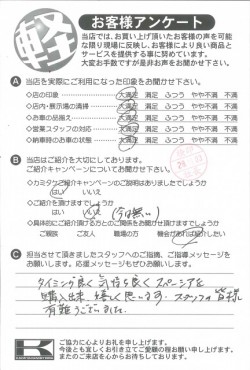 軽 お客様アンケート
当店では、お買い上げ頂いたお客様の声を可能
な限り現場に反映し、お客様により良い商品と
サービスを提供する事に努めています。
大変お手数ですが是非お声をお聞かせ下さい。
A 当店を実際にご利用になった印象をお聞かせ下さい。
◇店の印象 大満足 満足 ふつう やや不満 不満
◇店内・展示場の清掃 大満足 満足 ふつう やや不満 不満
◇お車の品揃え 大満足 満足 ふつう やや不満 不満
◇営業スタッフの対応 大満足 満足 ふつう やや不満 不満
◇納車時のお車の状態 大満足 満足 ふつう やや不満 不満
B 当店はご紹介を大切にしております。
ご紹介キャンペーンについてお聞かせ下さい。
◇カミタケご紹介キャンペーンのご説明はありましたでしょうか
はい いいえ
◇ご紹介を頂けますでしょうか
はい いいえ (今は無い)
◇具体的にご紹介頂けるご関係をお聞かせ頂けますでしょうか
ご親族 ご友人 職場の方 機会があれば紹介したい
C 担当させて頂きましたスタッフへのご指摘、ご指導メッセージを
お願いします。応援メッセージもぜひお願いします。
タイミング良く 気持ち良く スムーズに
購入出来 嬉しく思います。スタッフの皆様
有難うございました。
K
ご協力に心よりお礼を申し上げます。
今後とも宜しくお引き立てご愛顧の程お願い申し上げます。
またのご来店を心からお待ちしております。